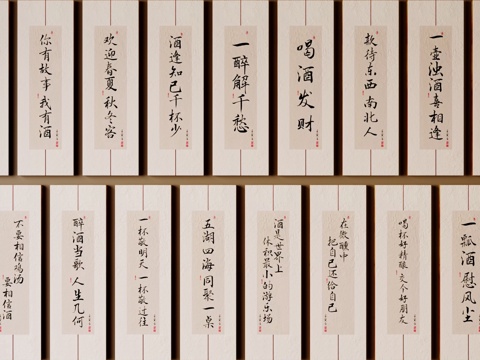 你有故事 我有酒
欢迎春夏 秋冬客
酒逢知己千杯少
一醉解千愁
喝酒发财
款待东西南北人
一壶浊酒喜相逢
不要相信鸡汤
要相信酒
醉酒当歌 人生几何
一杯敬明天 一杯敬过往
五湖四海 同聚一桌
酒是世界上
体积最小的游乐场
在微醺中
把自己还给自己
喝杯好精酿 交个好朋友
一瓢酒慰风尘